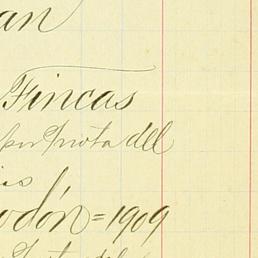 an
Fincas
por Nota del
is
odón=1909